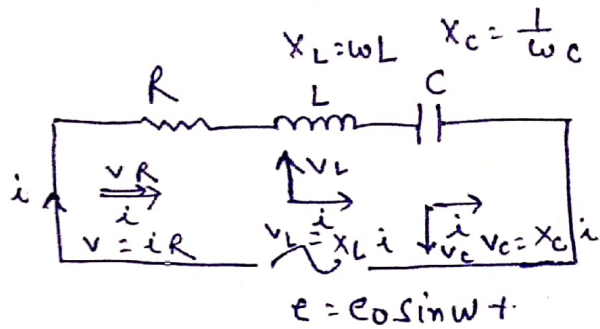 X_L = ωL    X_C = 1/ωC
R    L    C
V_R    V_L
i    i    i    i
V = iR    V_L = X_L i    V_C    V_C = X_C i
e = e_0 sin ωt.